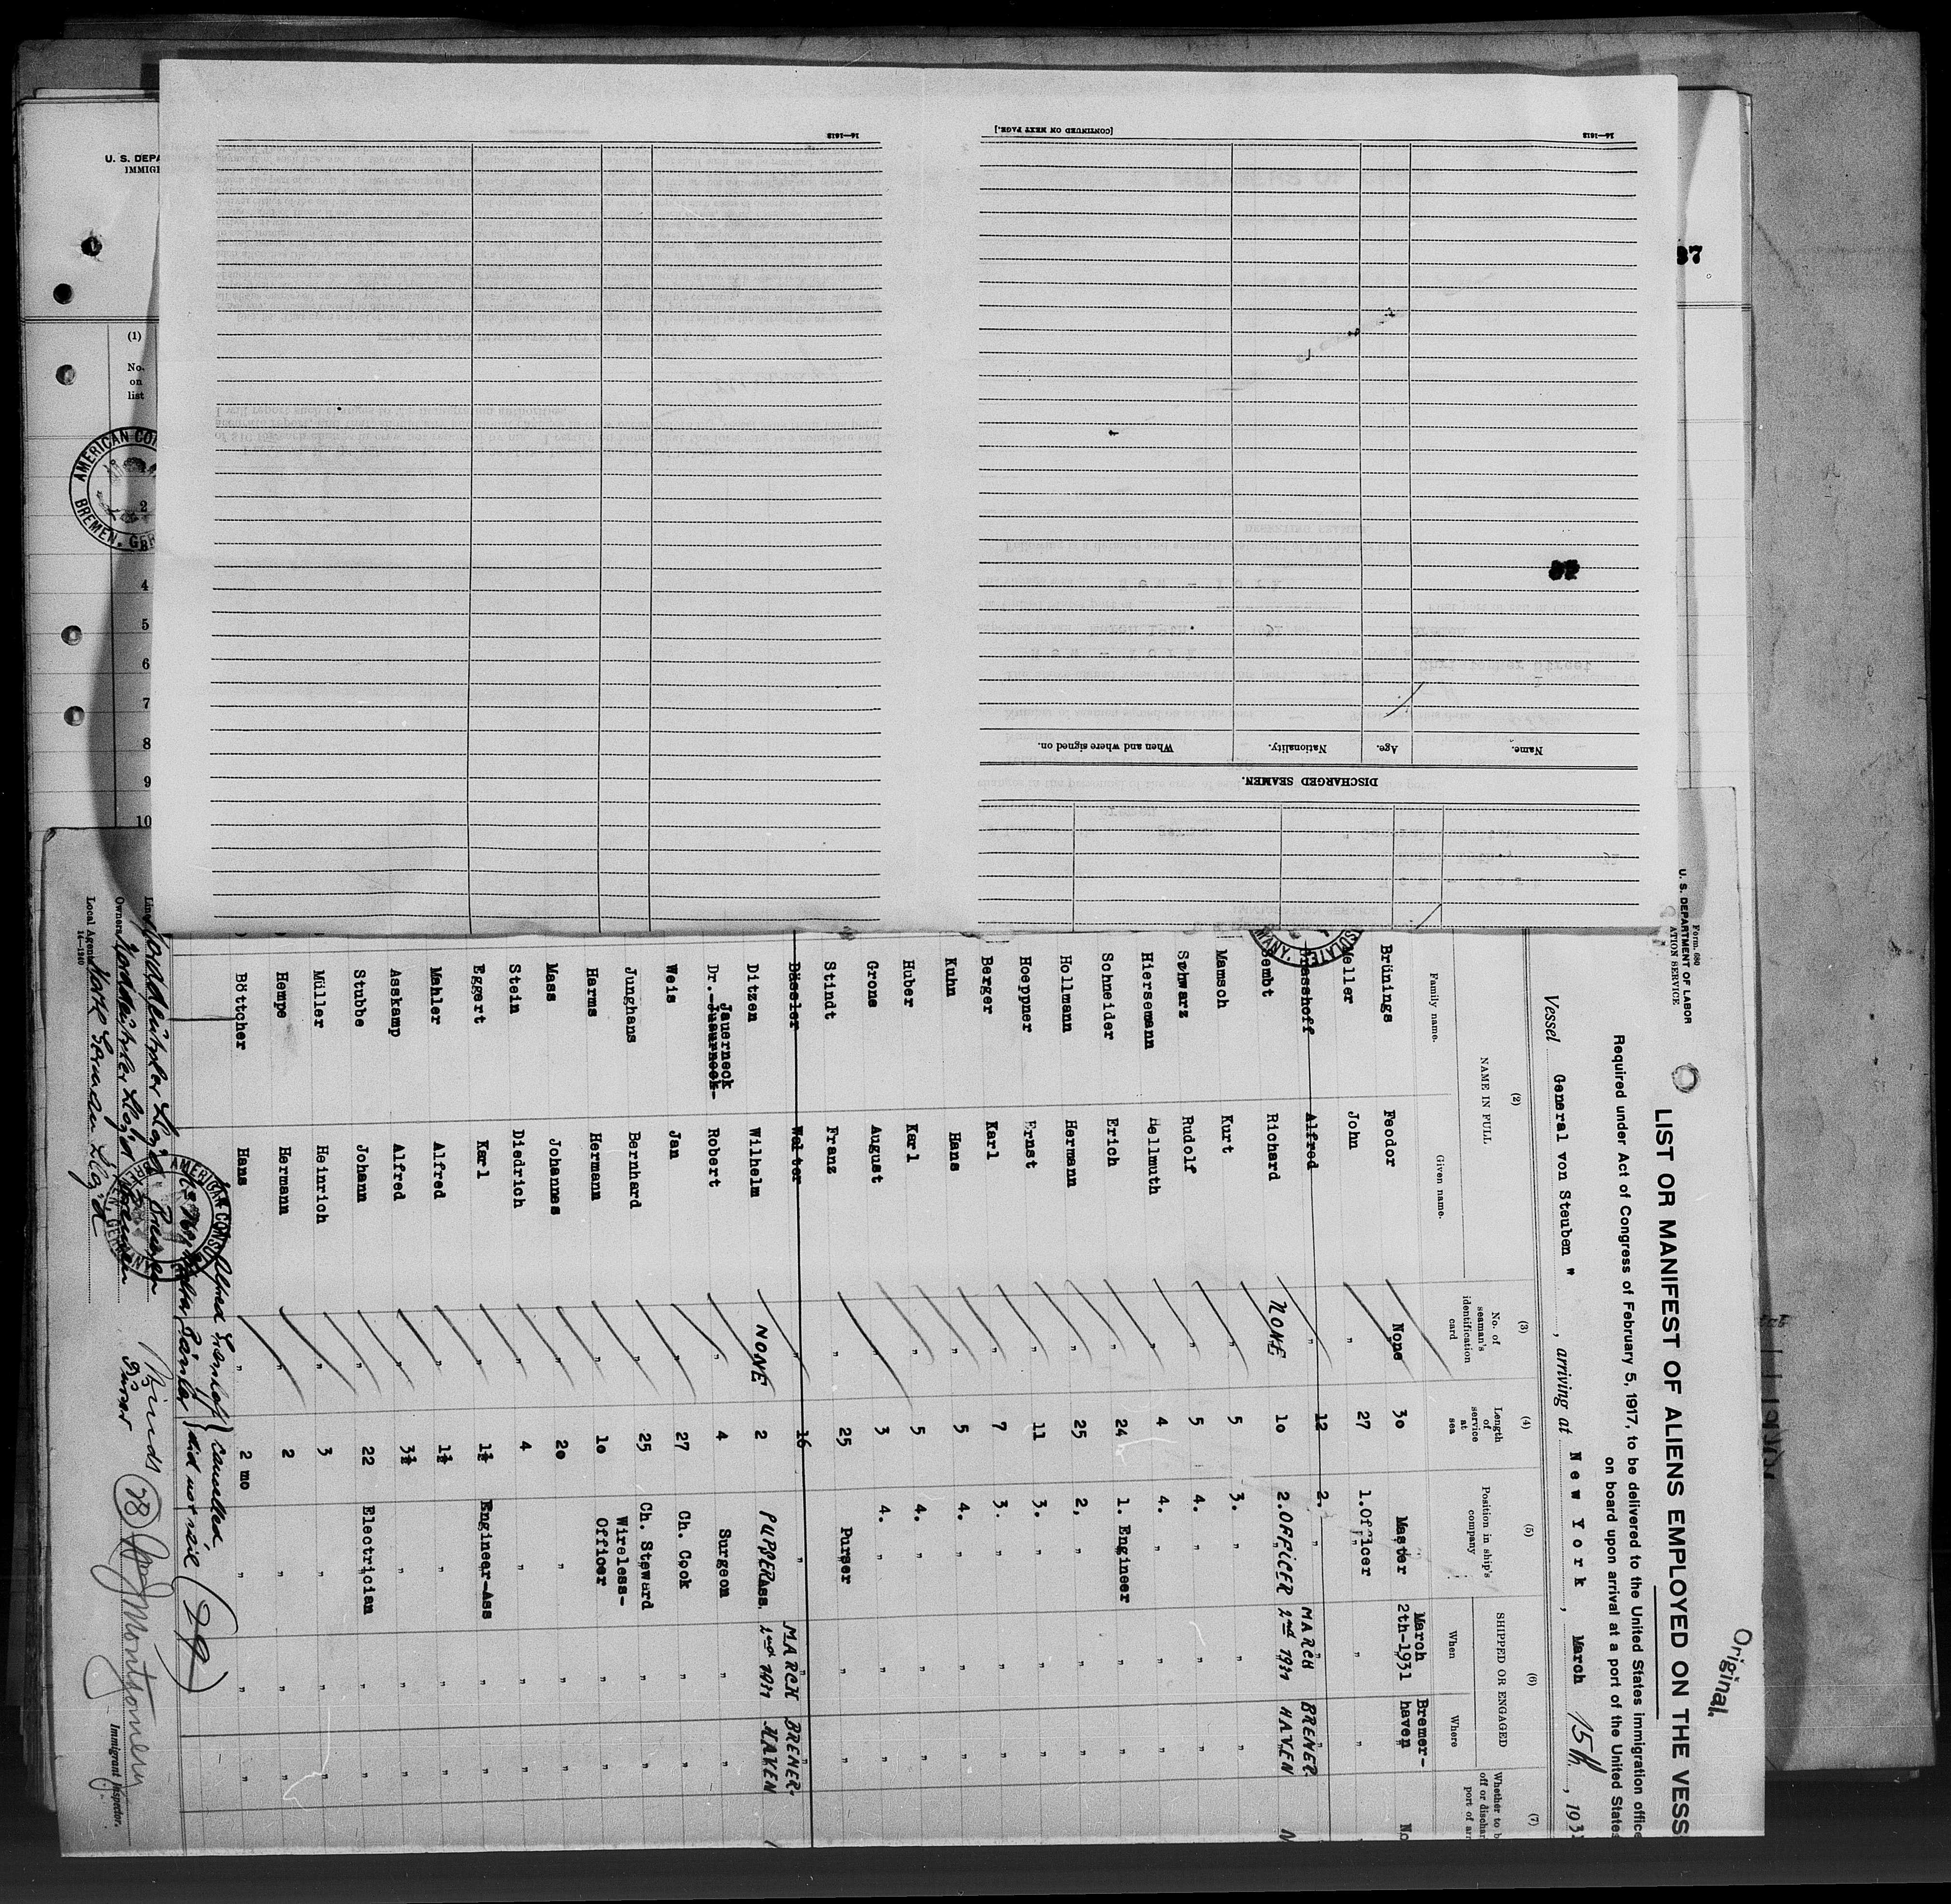 U. S. DEPA
IMMIGI
(1)
No.
on
list
AMERICAN CON
BREMEN, GER
2
3
4
5
6
7
8
9
10
37
14—1613
[CONTINUED ON NEXT PAGE.]
14—1613
DISCHARGED SEAMEN.
Name. Age. Nationality. When and where signed on.
Original.
Form 680
U. S. DEPARTMENT OF LABOR
ATION SERVICE
LIST OR MANIFEST OF ALIENS EMPLOYED ON THE VESS
Required under Act of Congress of February 5, 1917, to be delivered to the United States immigration office
on board upon arrival at a port of the United States
Vessel General von Steuben " , arriving at New York , March 15th , 1931
(2) (3) (4) (5) (6) (7)
NAME IN FULL
Family name. Given name.
No. of seaman's identification card
Length of service at sea
Position in ship's company
SHIPPED OR ENGAGED
When Where
Whether to b
off or dischar
port of arr
Brünings Feodor None 30 Master March 2th-1931 Bremer-haven No
Weller John " 27 1.Officer " "
Grasshoff Alfred " 12 2. " " "
Sembt Richard NONE 10 2.OFFICER MARCH 2nd 1931 BREMER-HAVEN N
Mamsch Kurt " 5 3. " " "
Schwarz Rudolf " 5 4. " " "
Hiersemann Hellmuth " 4 4. " " "
Schneider Erich " 24 1. Engineer " "
Hollmann Hermann " 25 2, " " "
Hoeppner Ernst " 11 3. " " "
Berger Karl " 7 3. " " "
Kuhn Hans " 5 4. " " "
Huber Karl " 5 4. " " "
Grons August " 3 4. " " "
Stindt Franz 25 Purser " "
Bässler Walter " 16 " " "
Ditzen Wilhelm NONE 2 PURSER Ass. MARCH 2nd 1931 BREMER-HAVEN
Jauerneck
Dr.-Jusurneck- Robert " 4 Surgeon " "
Weis Jan " 27 Ch. Cook " "
Junghans Bernhard " 25 Ch. Steward " "
Harms Hermann " 10 Wireless-Officer " "
Mass Johannes " 20 " " "
Stein Diedrich " 4 " " "
Eggert Karl " 1½ Engineer-Ass " "
Mahler Alfred " 1½ " " "
Asskamp Alfred " 3½ " " "
Stubbe Johann " 22 Electrician " "
Müller Heinrich " 3 " " "
Hempe Hermann " 2 " " "
Böttcher Hans " 2 mo " " "
Alfred Grasshoff } cancelled,
Walter Bässler } did not sail (29)
AMERICAN CONSUL
Line Norddeutscher Lloyd Bremen
Owners Norddeutscher Lloyd Bremen
Local Agents North German Lloyd
14—1240
28
Montgomery
Immigrant Inspector.